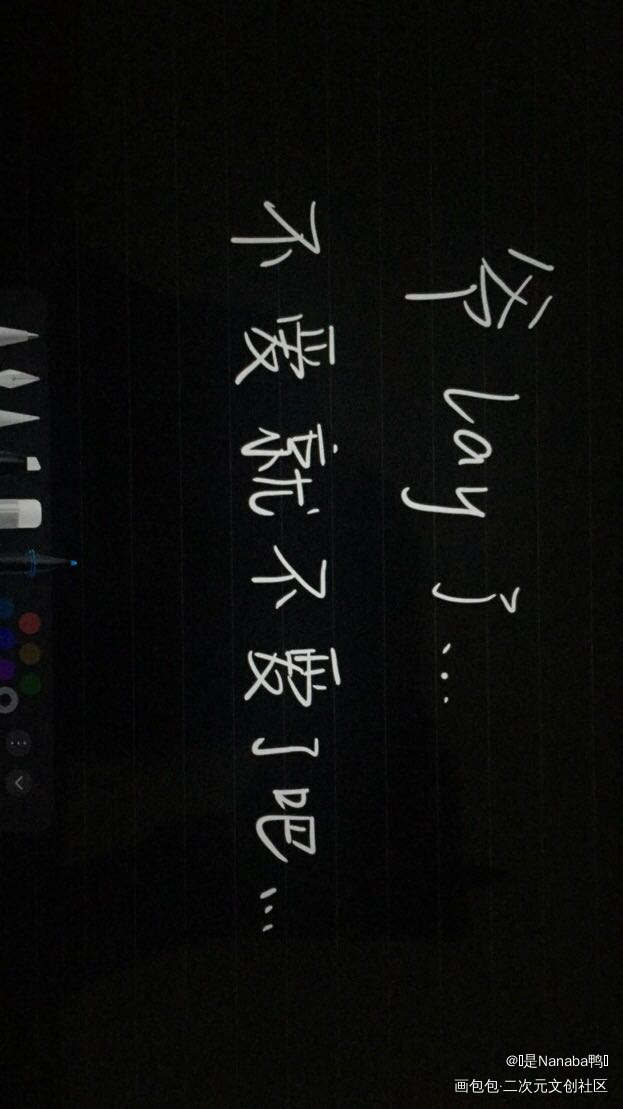 爷 lay 了...
不要就不要了吧...
@是Nanaba鸭
画包包·二次元文创社区